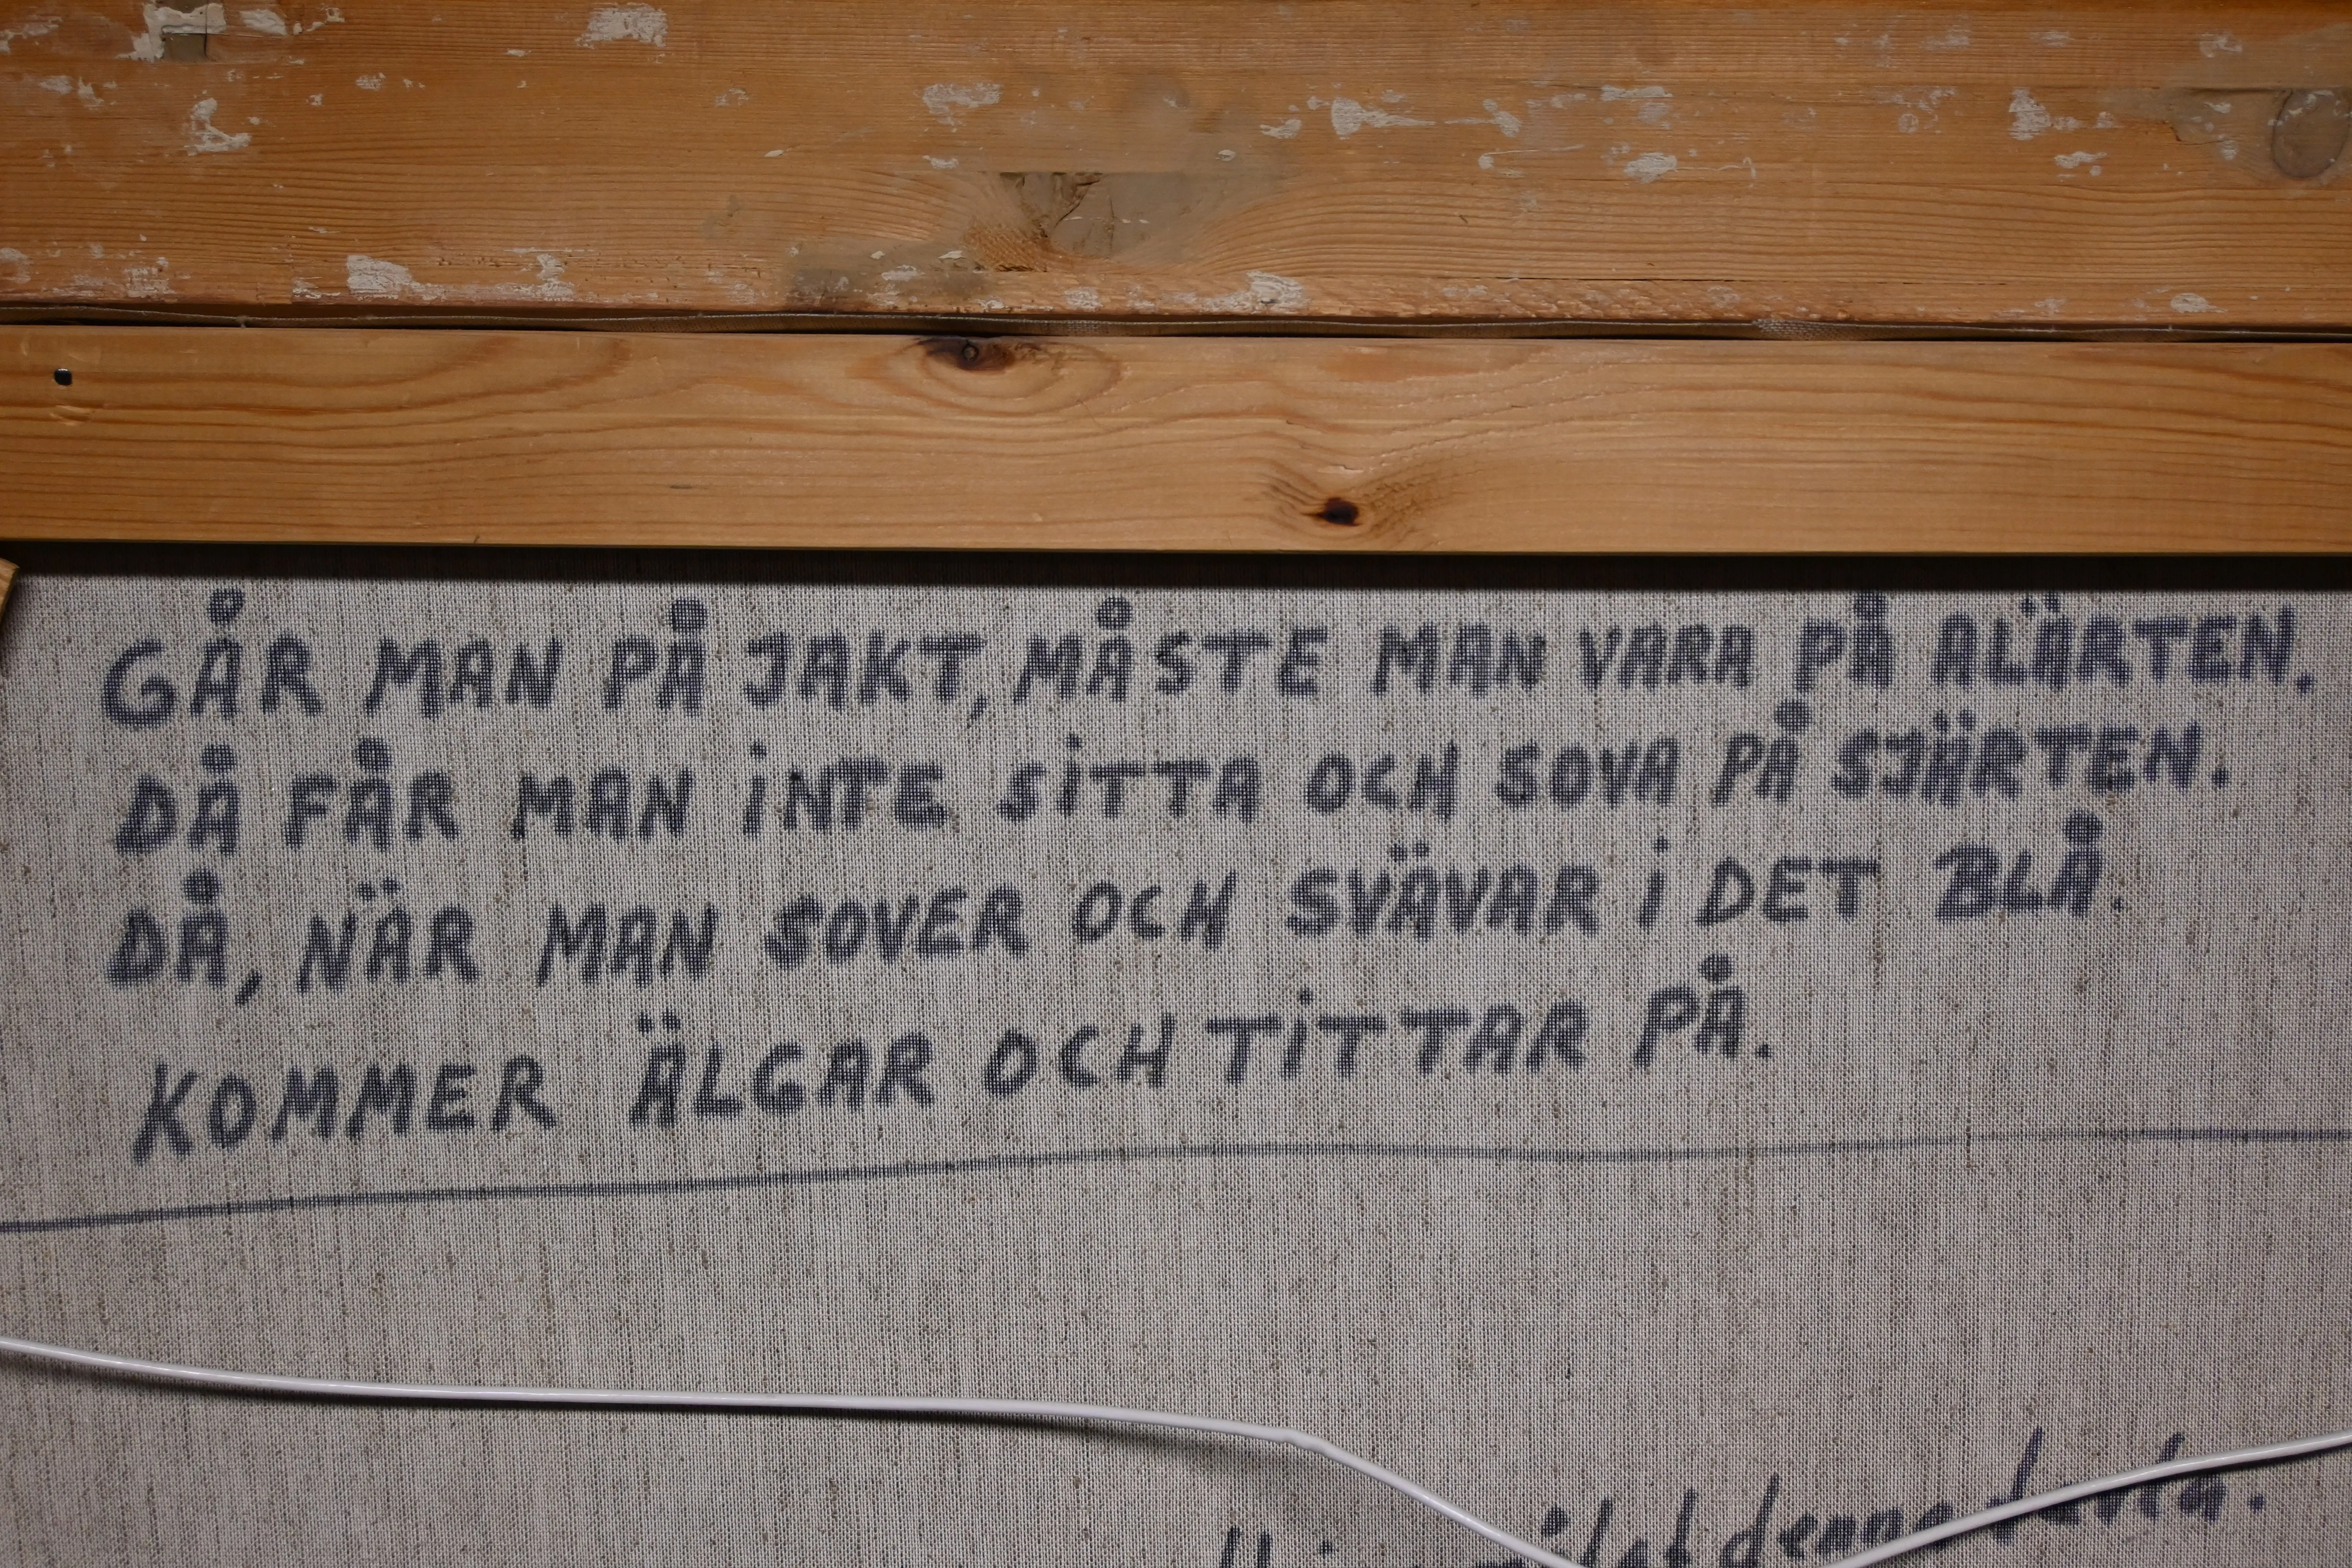 GÅR MAN PÅ JAKT, MÅSTE MAN VARA PÅ ALÄRTEN.
DÅ FÅR MAN INTE SITTA OCH SOVA PÅ SJÄRTEN.
DÅ, NÄR MAN SOVER OCH SVÄVAR I DET BLÅ.
KOMMER ÄLGAR OCH TITTAR PÅ.
denna tavla.